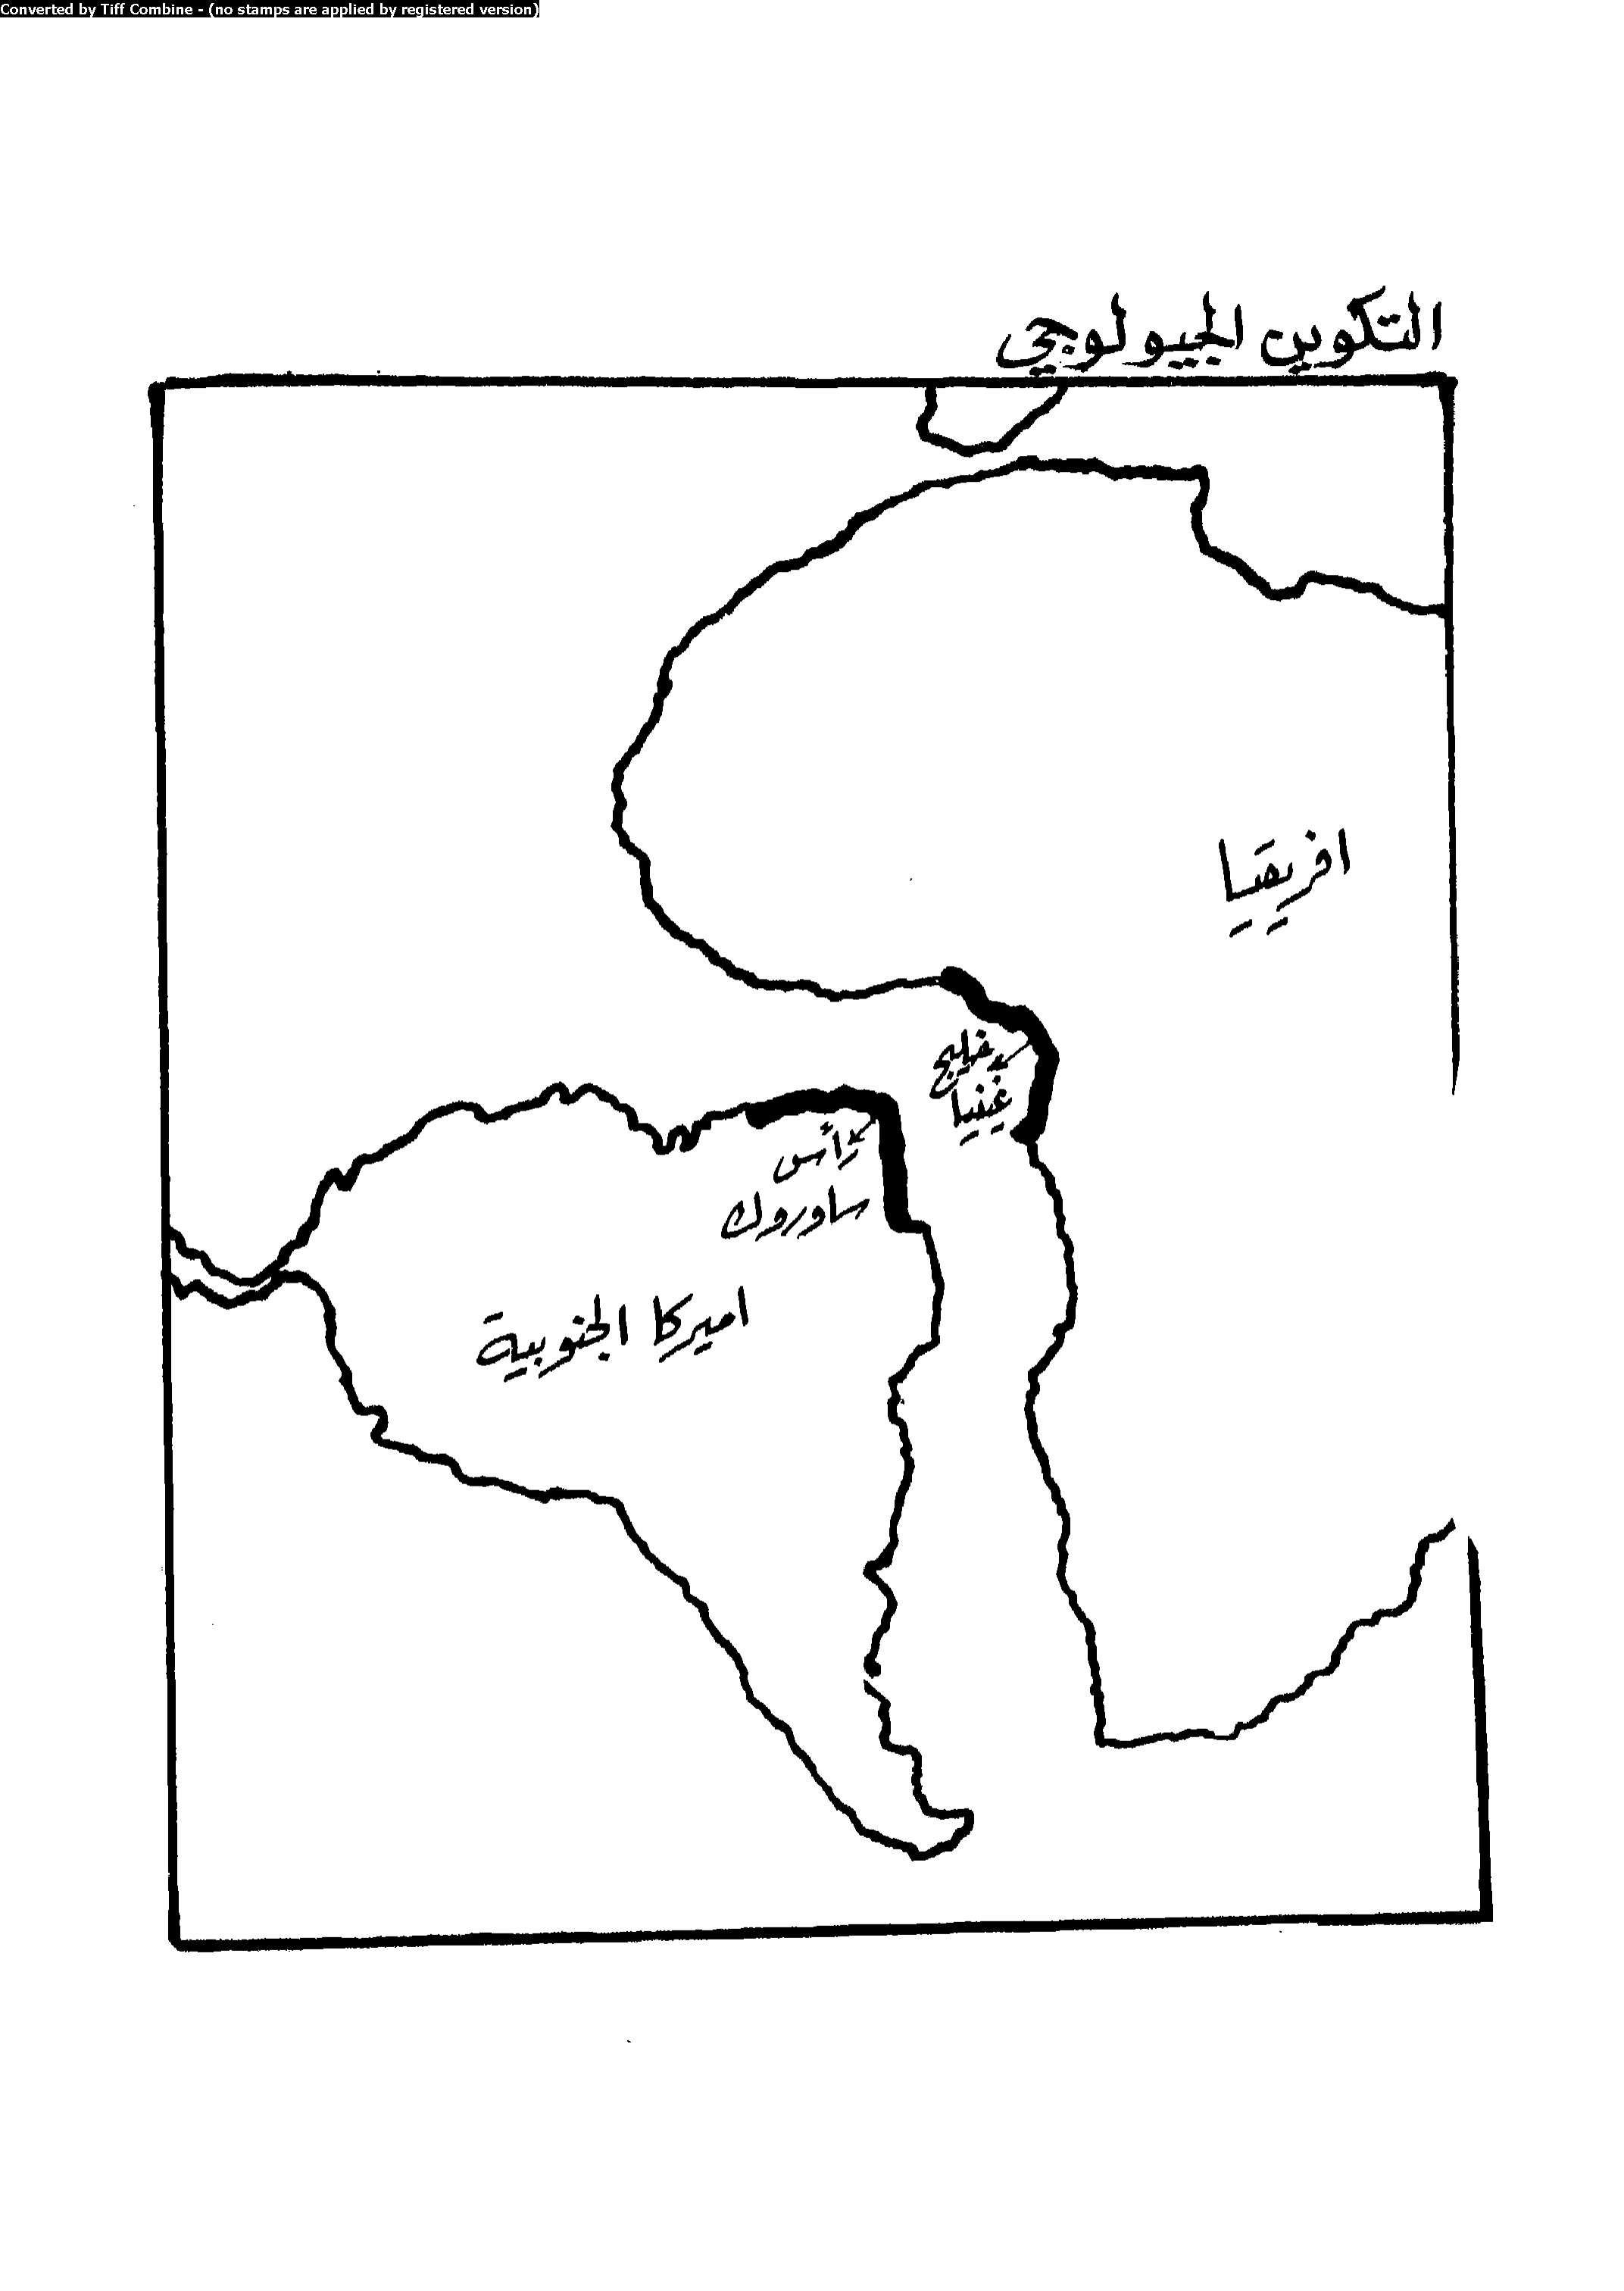 Converted by Tiff Combine - (no stamps are applied by registered version)
التكوين الجيولوجي
افريقيا
خليج
غينيا
رأس
ساوروك
اميركا الجنوبية